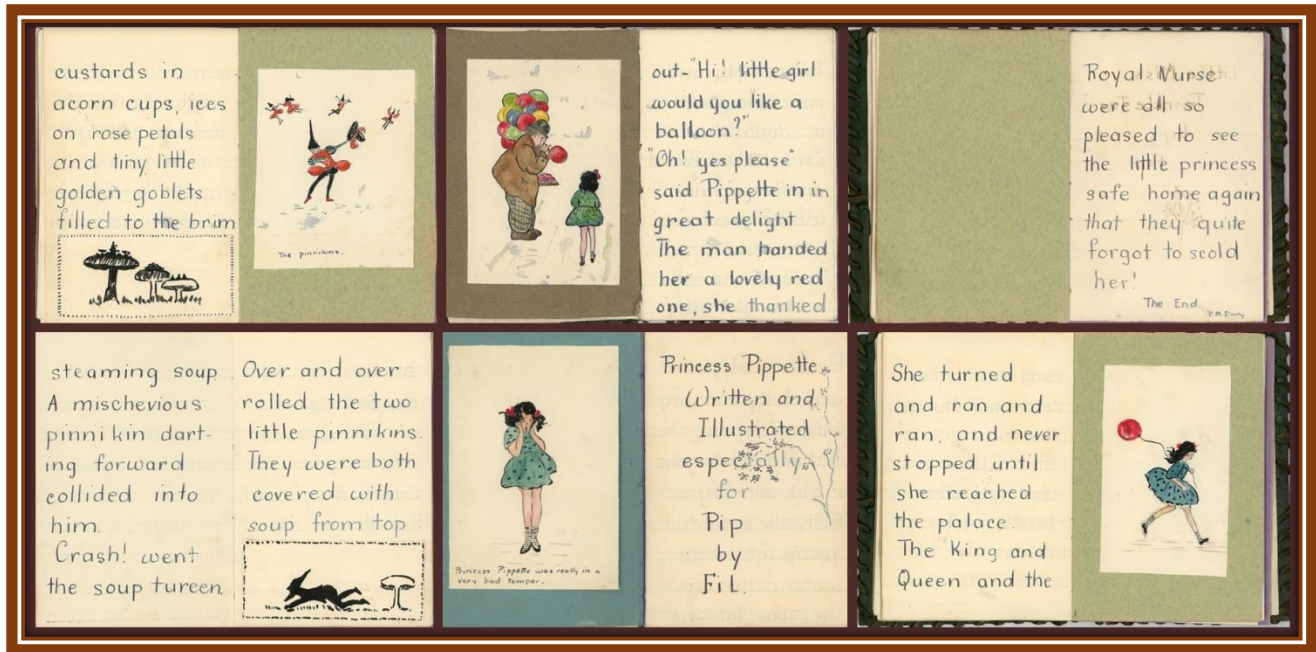 custards in
acorn cups, ices
on rose petals
and tiny little
golden goblets
filled to the brim
The pinnikins.
out-"Hi! little girl
would you like a
balloon?"
"Oh! yes please"
said Pippette in in
great delight
The man handed
her a lovely red
one, she thanked
Royal Nurse
were all so
pleased to see
the little princess
safe home again
that they quite
forgot to scold
her!
The End.
steaming soup
A mischevious
pinnikin dart-
ing forward
collided into
him.
Crash! went
the soup tureen.
Over and over
rolled the two
little pinnikins.
They were both
covered with
soup from top
Princess Pippette was really in a
very bad temper.
Princess Pippette
Written and
Illustrated
especially
for
Pip
by
FiL.
She turned
and ran and
ran, and never
stopped until
she reached
the palace.
The King and
Queen and the